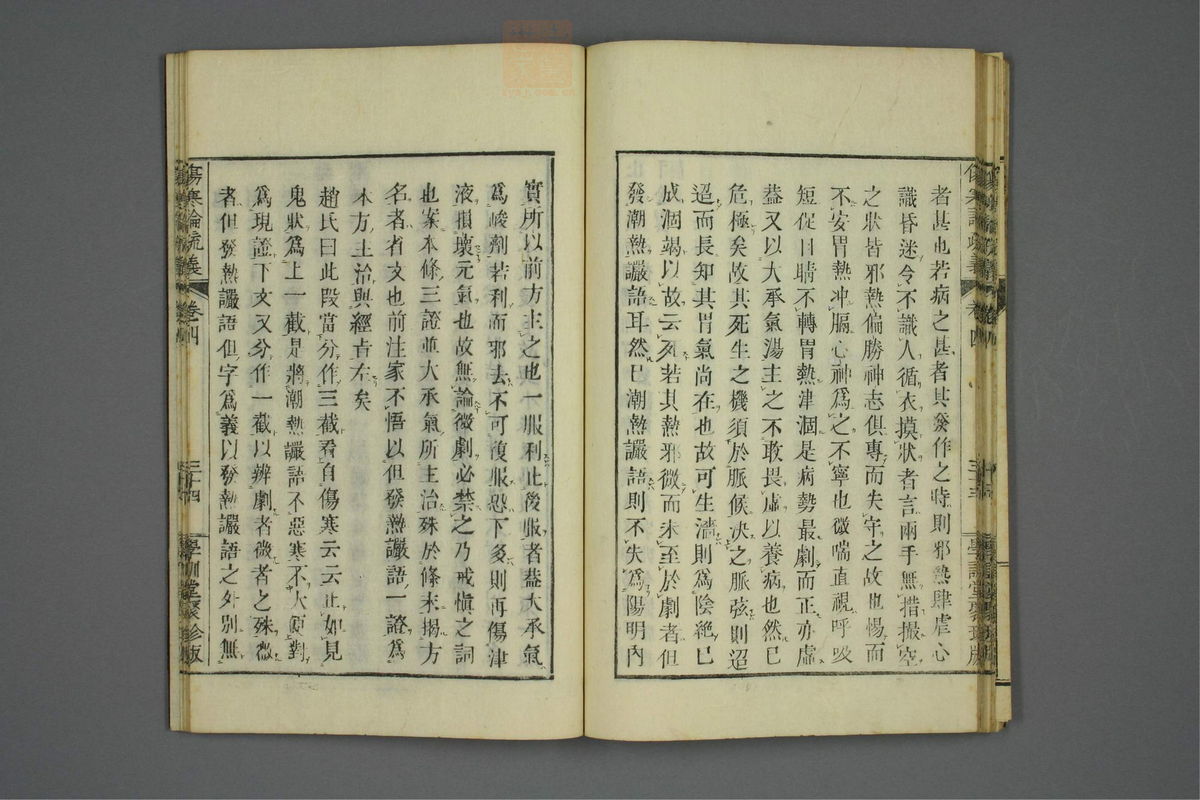 者甚也若病之甚者其發作之時則邪熱肆虐心
識昏迷令不識人循衣摸狀者言兩手無措撮空
之狀皆邪熱偏勝神志俱專而失守之故也惕而
不安胃熱冲膈心神爲之不寧也微喘直視呼吸
短促目睛不轉胃熱津涸是病勢最劇而正亦虛
葢又以大承氣湯主之不敢畏虛以養病也然已
危極矣故其死生之機須於脈候决之脈弦則迢
迢而長知其胃氣尚在也故可生濇則爲陰絶已
成涸竭以故云死若其熱邪微而未至於劇者但
發潮熱讝語耳然已潮熱讝語則不失爲陽明內
實所以前方主之也一服利止後服者葢大承氣
爲峻劑若利而邪去不可復服恐下多則再傷津
液損壞元氣也故無論微劇必禁之乃戒愼之詞
也案本條三證並大承氣所主治殊於條末揭方
名者省文也前注家不悟以但發熱讝語一證爲
本方主治與經旨左矣
趙氏曰此段當分作三截看自傷寒云云止如見
鬼狀爲上一截是將潮熱讝語不惡寒不大便對
爲現證下文又分作一截以辨劇者微者之殊微
者但發熱讝語但字爲義以發熱讝語之外別無
傷寒論疏義
卷四
三十四
學訓堂聚珍版